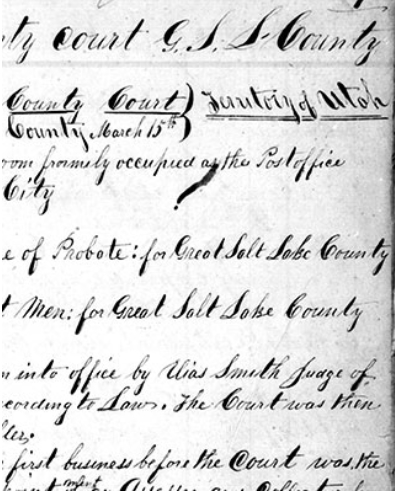 ty court G. S. L. County
County Court) Territory of Utah
County March 15th)
room formily occupied as the Postoffice
City
e of Probate: for Great Salt Lake County
t Men: for Great Salt Lake County
n into office by Elias Smith Judge of
ccording to Law. The Court was then
first business before the Court was, the
ment an Assessor and Collector